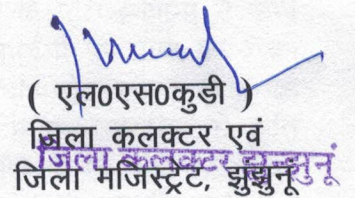 ( एल0एस0कुडी )
जिला कलक्टर एवं
जिला कलक्टर झुन्झुनूं
जिला मजिस्ट्रेट, झुझुनू